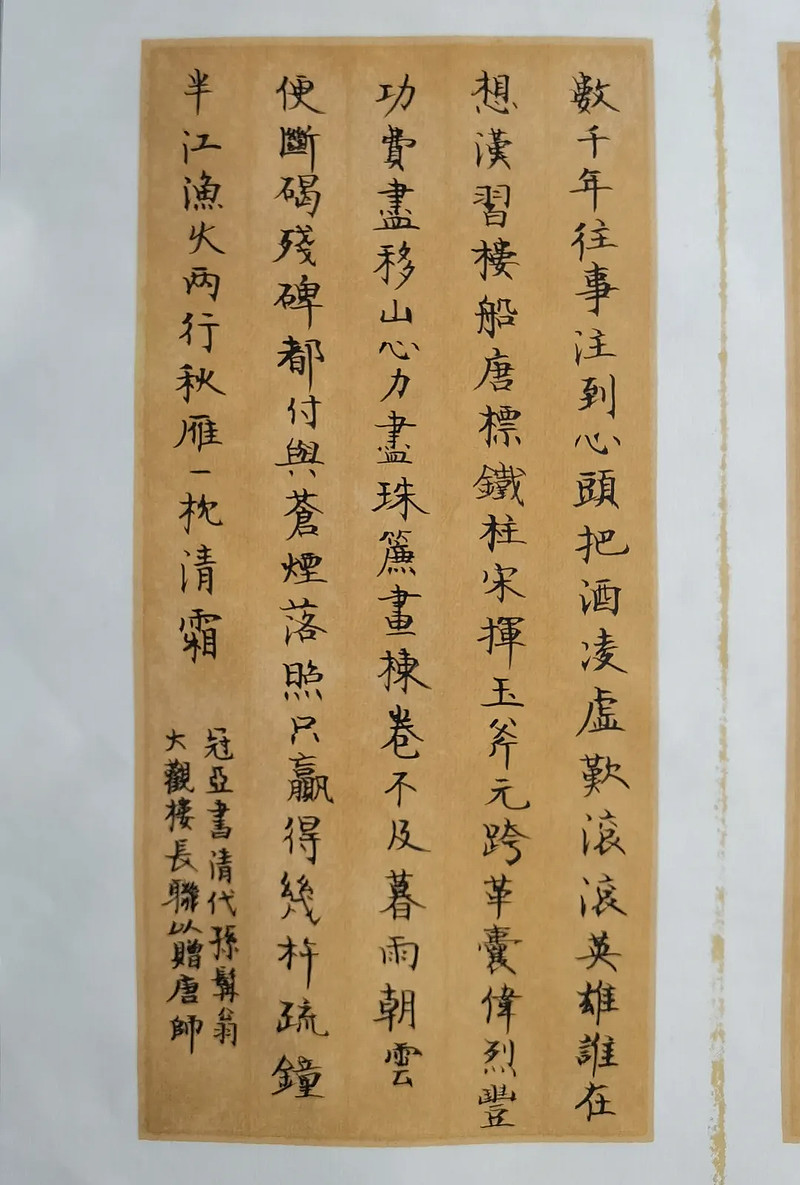 數千年往事注到心頭把酒凌虛歎滾滾英雄誰在
想漢習樓船唐標鐵柱宋揮玉斧元跨革囊偉烈豐
功費盡移山心力盡珠簾畫棟卷不及暮雨朝雲
便斷碣殘碑都付與蒼煙落照只贏得幾杵疏鐘
半江漁火两行秋雁一枕清霜
冠亞書清代孫髯翁
大觀樓長聯以贈唐師